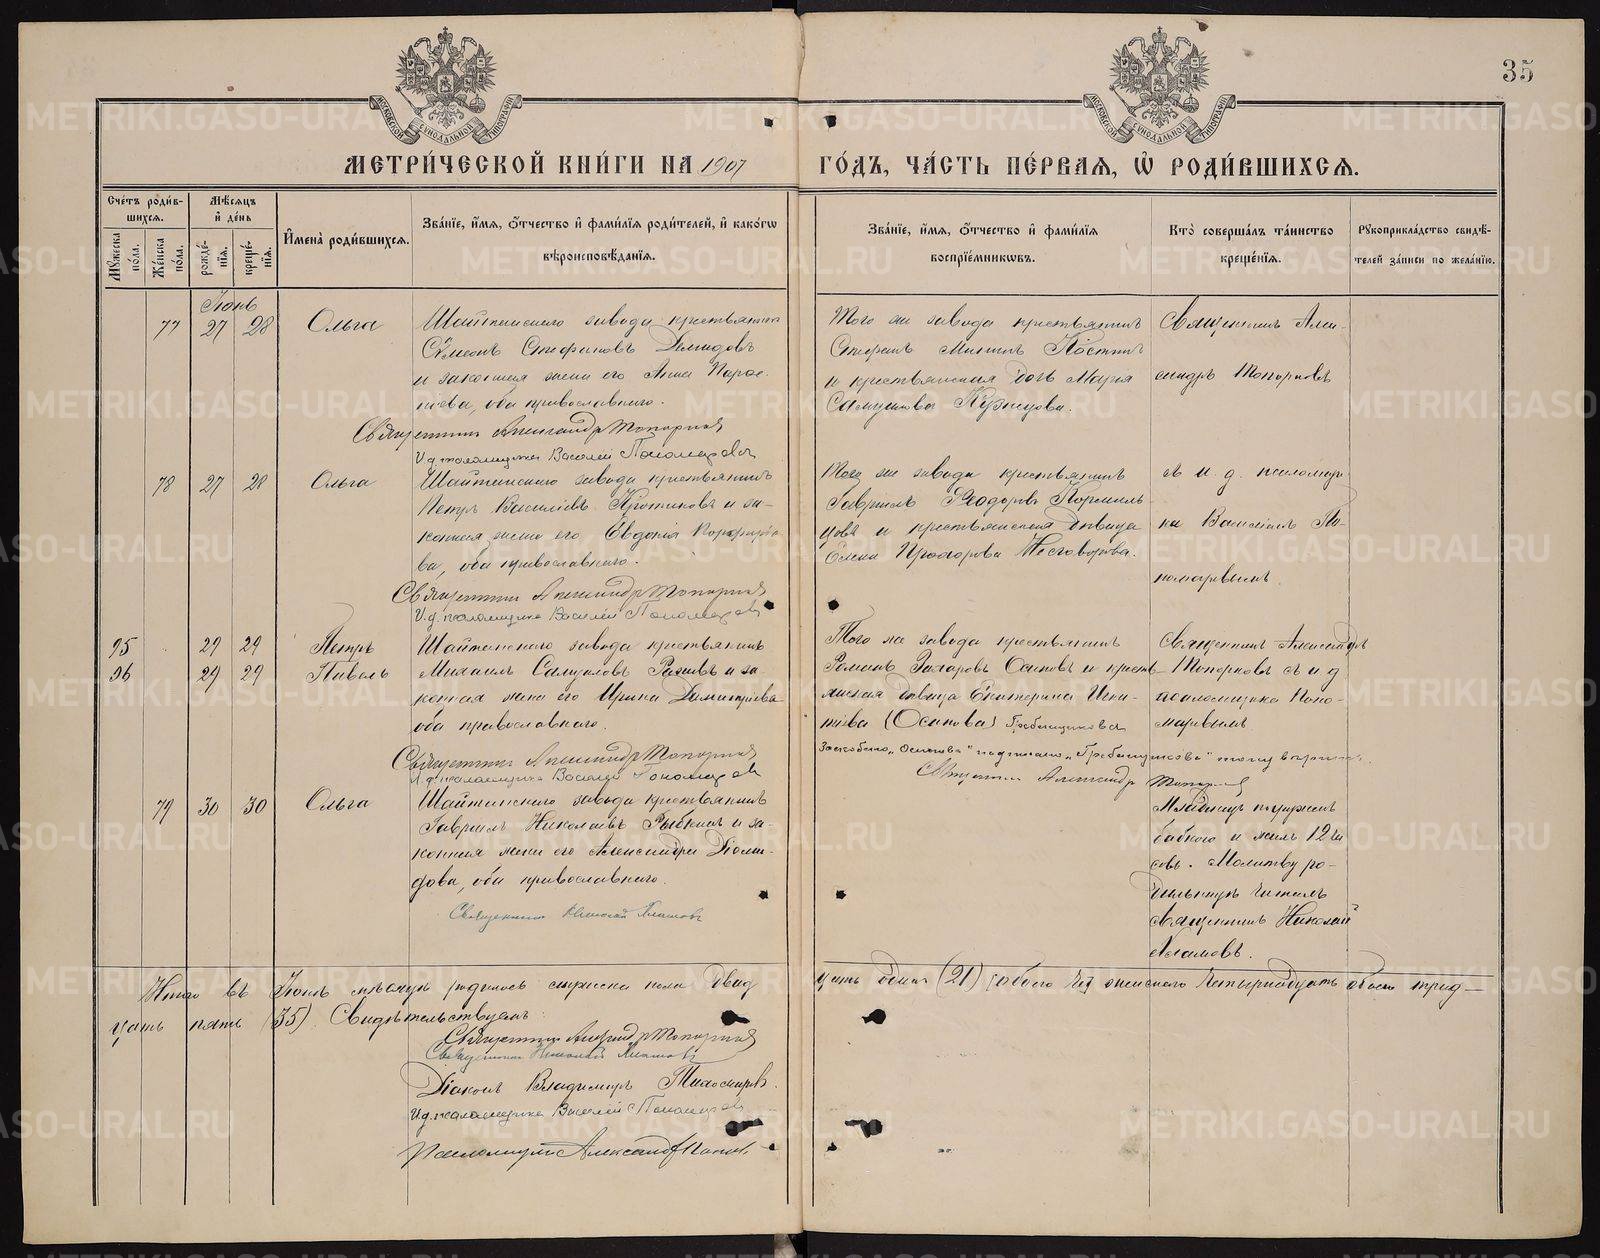 35
МОСКОВСКОЙ СѴНОДАЛЬНОЙ ТИПОГРАФІИ
МОСКОВСКОЙ СѴНОДАЛЬНОЙ ТИПОГРАФІИ
МЕТРИ́ЧЕСКОЙ КНИ́ГИ НА 1907 ГО́ДЪ, ЧА́СТЬ ПЕ́РВАЯ, Ѡ҆ РОДИ́ВШИХСЯ.
Сче́тъ роди́в-
шихся.
Мѣ́сяцъ
и҆ де́нь
Мꙋ́жеска по́ла.
Же́нска по́ла.
рожде́-
нїя.
креще́-
нїя.
И҆мена̀ роди́вшихся.
Зва́нїе, и҆́мя, ѻ҆́тчество и҆ фами́лїя роди́телей, и҆ како́гѡ
вѣроисповѣ́данїя.
Зва́нїе, и҆́мя, ѻ҆́тчество и҆ фами́лїя
воспрїе́мникѡвъ.
Кто̀ соверша́лъ та́инство
креще́нїя.
Рꙋкоприкла́дство свидѣ́-
телей за́писи по жела́нїю.
Іюнь
77 27 28 Ольга
Шайтанскаго завода крестьянинъ
Сѵмеонъ Стефановъ Демидовъ
и законная жена его Анна
оба православнаго.
Священникъ Александръ Топорковъ
И.д. псаломщика Василій Пономаревъ
Того же завода крестьянинъ
Стефанъ Костинъ
и крестьянская дочь Марія
Самуилова Кузнецова.
Священникъ Алек-
сандръ Топорковъ
78 27 28 Ольга
Шайтанскаго завода крестьянинъ
Петръ Василіевъ и за-
конная жена его Евдокія
ва, оба православнаго.
Священникъ Александръ Топорковъ
И.д. псаломщика Василій Пономаревъ
Того же завода крестьянинъ
Гавріилъ Ѳеодоровъ Кормиль-
цовъ и крестьянская дѣвица
Елена Прохорова
съ и. д. псаломщи-
ка Василіемъ По-
номаревымъ.
95 29 29 Петръ
96 29 29 Павелъ
Шайтанскаго завода крестьянинъ
Михаилъ Самуиловъ и за-
конная жена его Ирина Димитріева
оба православнаго.
Священникъ Александръ Топорковъ
И.д. псаломщика Василій Пономаревъ
Того же завода крестьянинъ
Романъ Захаровъ Осиповъ и кресть-
янская дѣвица Екатерина Игна-
тіева (Осипова) Гребенщикова
Заскоблено „Осипова" надписано „Гребенщикова" тому вѣрить.
Священникъ Александръ Топорковъ
Священникъ Александръ
Топорковъ съ и д
псаломщика Поно-
маревымъ
79 30 30 Ольга
Шайтанскаго завода крестьянинъ
Гавріилъ Николаевъ и за-
конная жена его Александра Діоми-
дова, оба православнаго.
Священникъ Николай
Младенецъ погруженъ
бабкою и жилъ 12 ча
совъ. Молитву ро-
дильницѣ читалъ
Священникъ Николай
Итого въ Іюнѣ мѣсяцѣ родилось мужеска пола двад
цать одинъ (21) женскаго четырнадцать обоего трид-
цать пять (35). Свидѣтельствуемъ:
Священникъ Александръ Топорковъ
Священникъ Николай
Діаконъ Владимиръ Тихомировъ.
И.д. псаломщика Василій Пономаревъ
Псаломщикъ Александръ Поповъ
METRIKI.GASO-URAL.RU